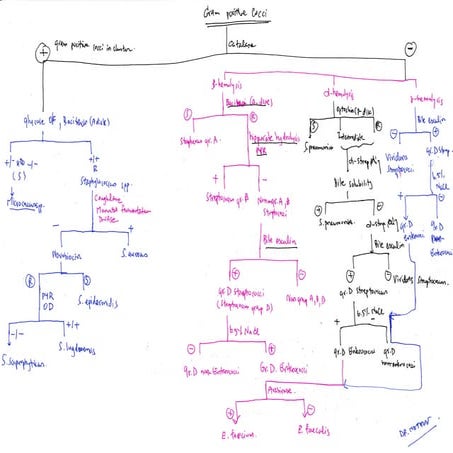 Gram positive cocci
Catalase
+
gram positive cocci in cluster
-
β-hemolysis
α-hemolysis
γ-hemolysis
Bacitracin (A. disc)
Optochin (P-disc)
Bile esculin
S
R
S
R
Intermediate
+
-
Streptococcus gr. A
Hippurate hydrolysis
PYR
S. pneumoniae
α-strep
Viridans
streptococci
gr. D strep.
6.5%
NaCl
glucose OF, Bacitracin (A disk)
+/- OR -/-
(S)
+/+
R
Micrococcus spp.
Staphylococcus spp.
Coagulase
Mannitol fermentation
DNase
+
-
Streptococcus gr. B
Non gr. A, B
Streptococci
Bile solubility
+
-
S. pneumoniae
α-strep
+
-
gr. D
Enterococci
gr. D
non
Enterococci
-
+
Novobiocin
S. aureus
Bile esculin
Bile esculin
+
-
+
-
R
S
PYR
OD
S. epidermidis
gr. D Streptococci
(Streptococcus group D)
Non group A, B, D
gr. D streptococcus
Viridans Streptococcus
6.5% NaCl
6.5% NaCl
-/-
+/+
S. saprophyticus
S. lugdunensis
-
+
+
-
gr. D non Enterococci
Gr. D Enterococci
gr. D Enterococci
gr. D
non enterococci
Arabinose
+
-
E. faecium
E. faecalis